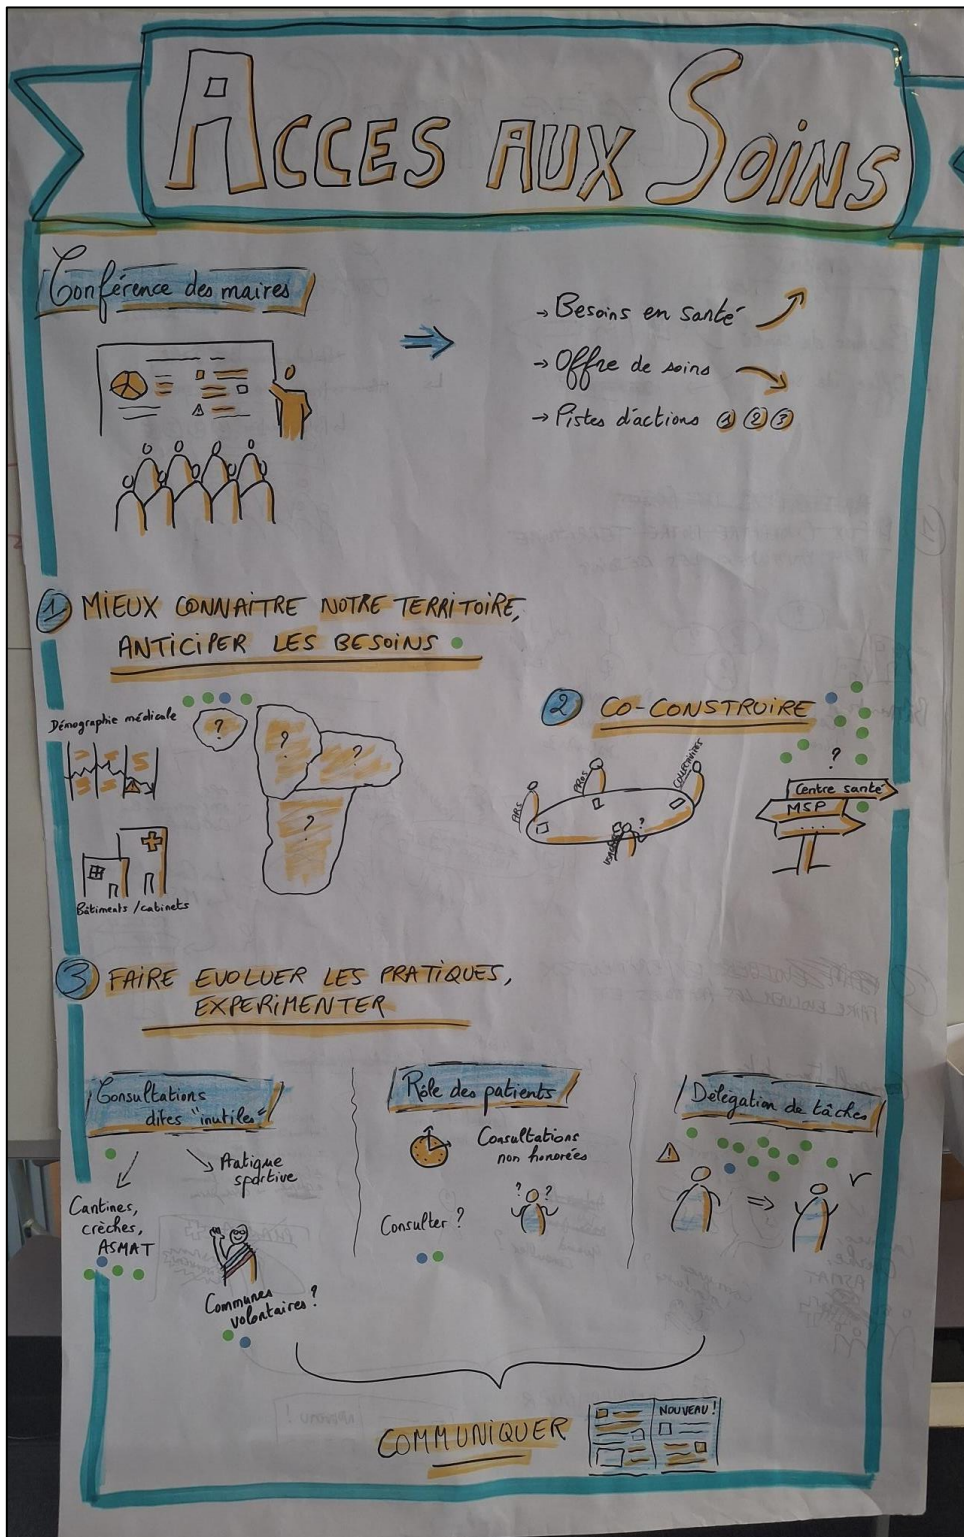 ACCES AUX SOINS
Conférence des maires
→ Besoins en santé
→ Offre de soins
→ Pistes d'actions ① ② ③
① MIEUX CONNAITRE NOTRE TERRITOIRE,
ANTICIPER LES BESOINS
Démographie médicale
?
?
?
?
Bâtiments / cabinets
② CO-CONSTRUIRE
ARS
PROS
COLLECTIVITES
USAGERS
?
?
Centre santé
MSP
...
③ FAIRE EVOLUER LES PRATIQUES,
EXPERIMENTER
Consultations
dites "inutiles"
Cantines,
crèches,
ASMAT
Pratique
sportive
Communes
volontaires ?
Rôle des patients
Consultations
non honorées
Consulter ?
? ?
Délégation de tâches
COMMUNIQUER
NOUVEAU !